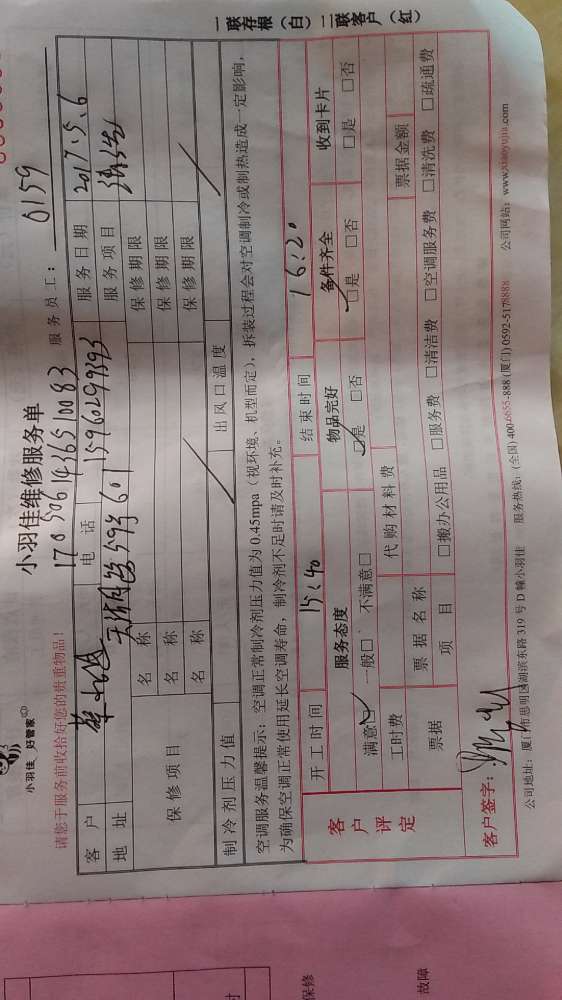 小羽佳 好管家
小羽佳维修服务单
请您于服务前收拾好您的贵重物品！
170506143651 0083
服务员工： 0159
客户 电话 15960299393 服务日期 2017.5.6
地址 天湖路 593 601 服务项目 清洗
保修项目
名称 保修期限
名称 保修期限
名称 保修期限
制冷剂压力值 出风口温度
空调服务温馨提示：空调正常制冷剂压力值为0.45mpa（视环境、机型而定），拆装过程会对空调制冷或制热造成一定影响，
为确保空调正常使用延长空调寿命，制冷剂不足时请及时补充。
客户评定
开工时间 15:40 结束时间 16:20
服务态度 物品完好 备件齐全 收到卡片
满意☑ 一般□ 不满意□ ☑是 □否 ☑是 □否 □是 □否
工时费 代购材料费 票据金额
票据 票据名称
项目 □搬办公用品 □服务费 □清洁费 □空调服务费 □清洗费 □疏通费
客户签字：
公司地址：厦门市思明区湖滨东路319号D幢小羽佳 服务热线：(全国) 400-6655-888 (厦门) 0592-5178888 公司网站：www.xiaoyujia.com
一联存根（白）二联客户（红）
保修
故障
时